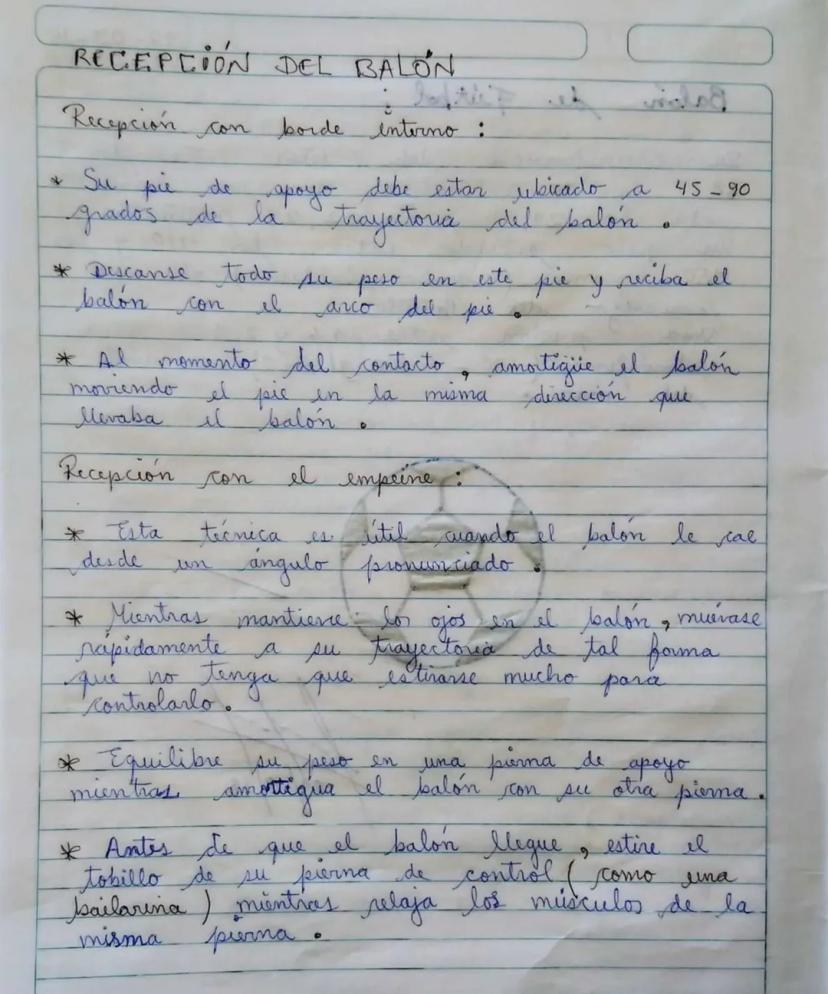 RECEPCIÓN DEL BALÓN
Recepción con borde interno :
* Su pie de apoyo debe estar ubicado a 45-90
grados de la trayectoria del balón .
* Descanse todo su peso en este pie y reciba el
balón con el arco del pie .
* Al momento del contacto , amortigüe el balón
moviendo el pie en la misma dirección que
llevaba el balón .
Recepción con el empeine :
* Esta técnica es útil cuando el balón le cae
desde un ángulo pronunciado .
* Mientras mantiene los ojos en el balón , muévase
rápidamente a su trayectoria de tal forma
que no tenga que estirarse mucho para
controlarlo .
* Equilibre su peso en una pierna de apoyo
mientras amortigua el balón con su otra pierna .
* Antes de que el balón llegue , estire el
tobillo de su pierna de control ( como una
bailarina ) mientras relaja los músculos de la
misma pierna .